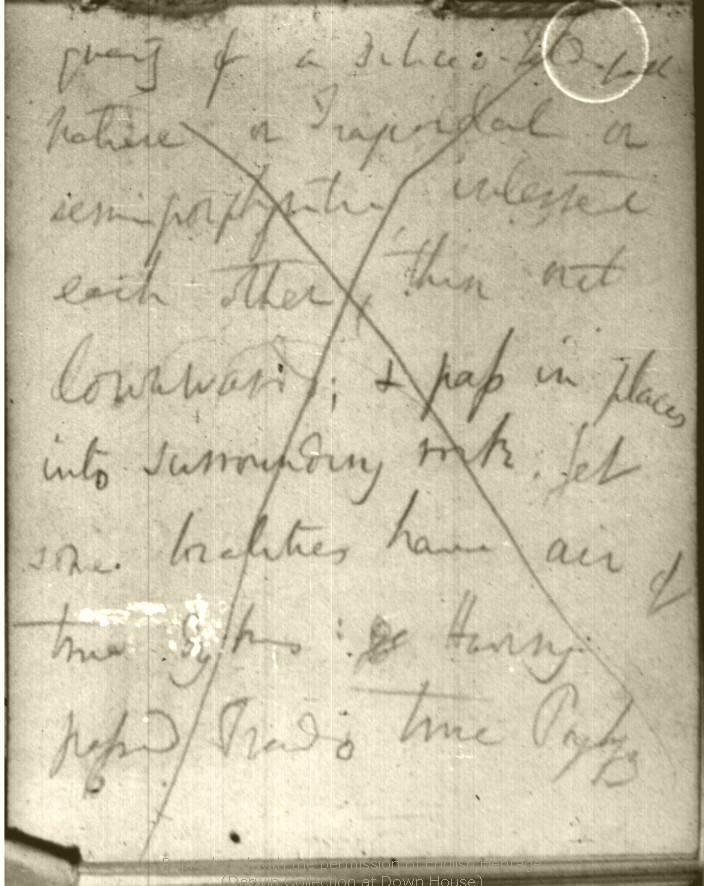 of a
nature or Trapoidal or
semiporphyritic intersect
each other, thin out
downwards; & pass in places
into surrounding rock. Yet
some localities have air of
true Dykes: Having
passed Prado true Porphyry
the permission of English Heritage
(Darwin Collection at Down House)